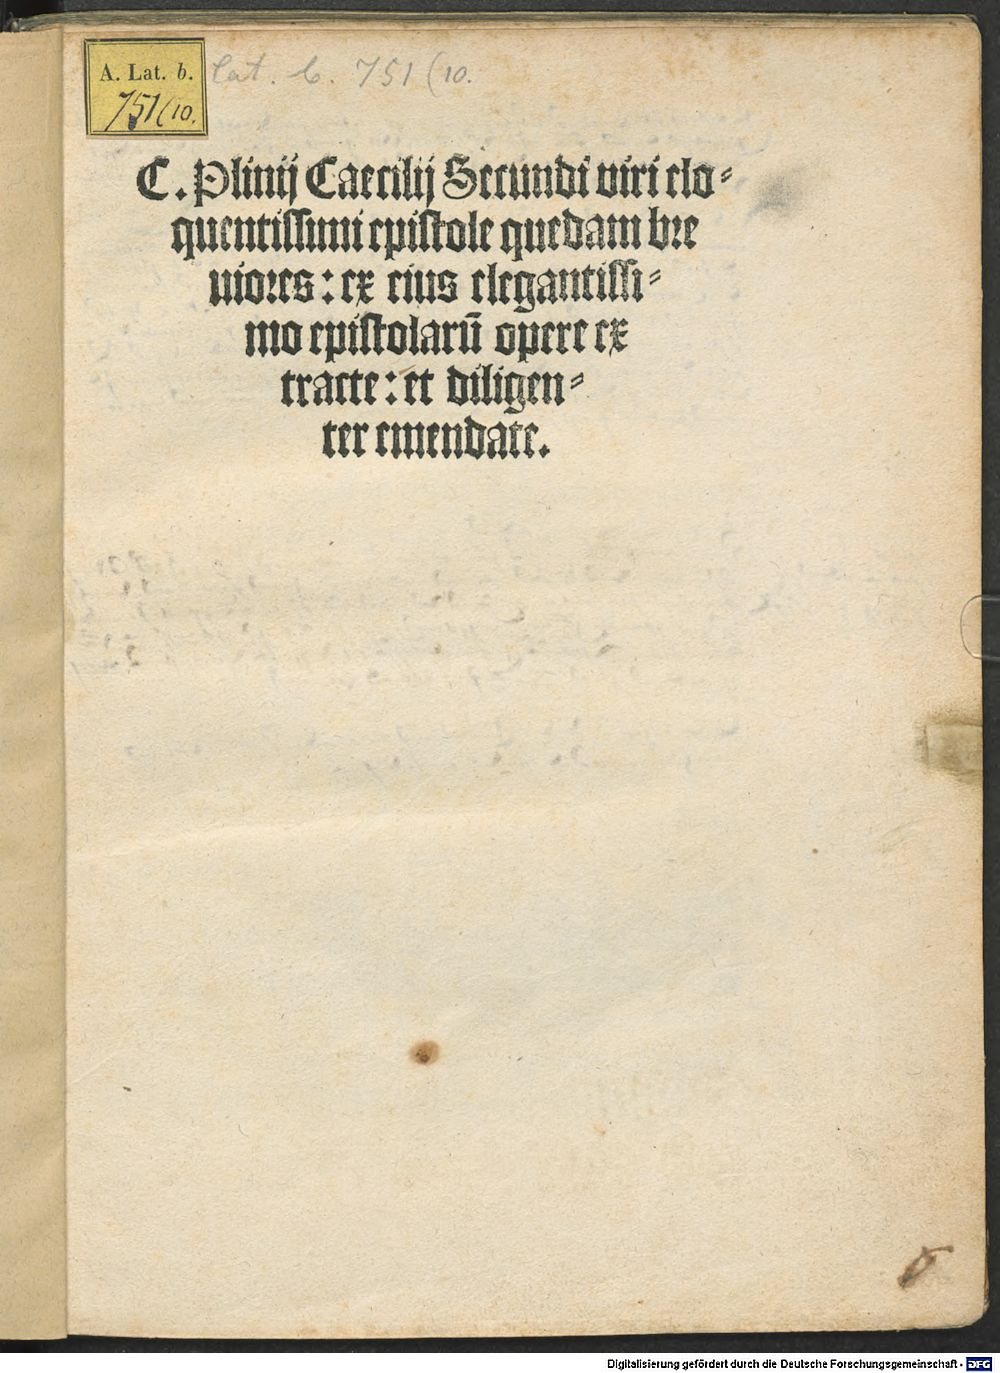 A. Lat. b.
751(10.
Lat. b. 751(10.
C. Plinij Caecilij Secundi viri elo⸗
quentissimi epistole quedam bre
uiores: ex eius elegantissi⸗
mo epistolarū opere ex
tracte: et diligen⸗
ter emendate.
Digitalisierung gefördert durch die Deutsche Forschungsgemeinschaft - DFG